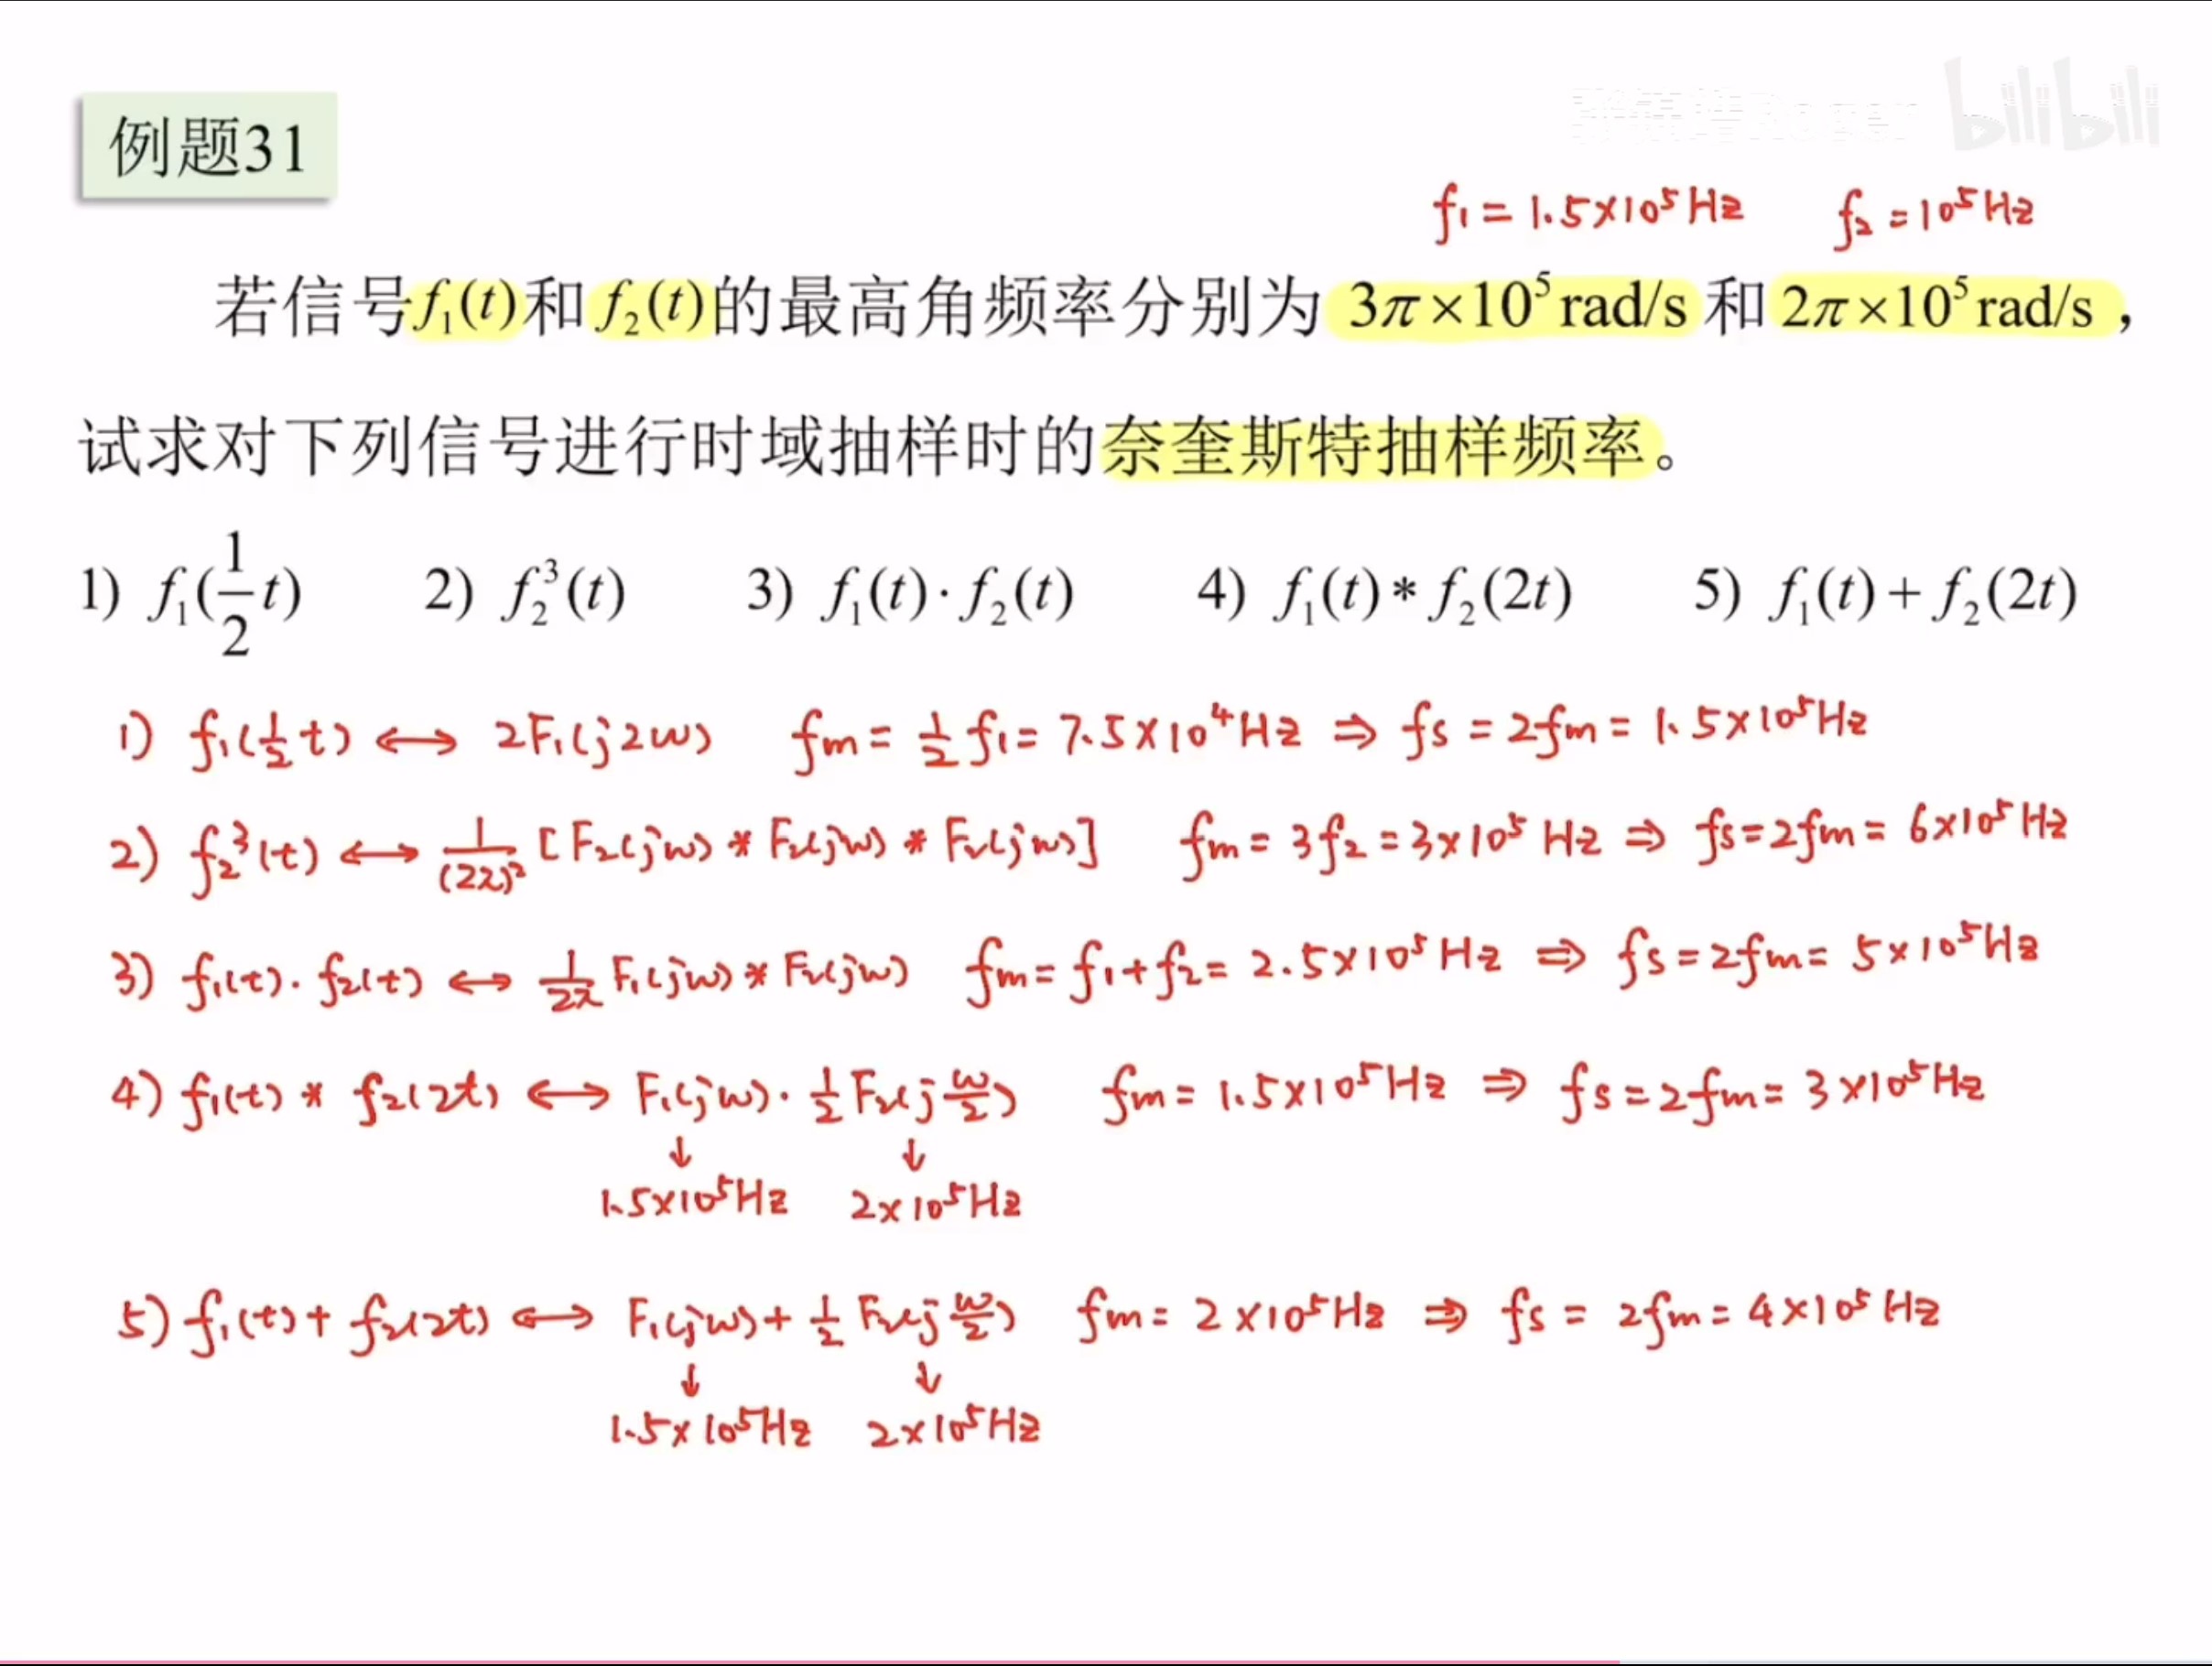 bilibili
例题31
f₁ = 1.5×10⁵Hz f₂ = 10⁵Hz
若信号f₁(t)和f₂(t)的最高角频率分别为 3π×10⁵rad/s 和 2π×10⁵rad/s，
试求对下列信号进行时域抽样时的奈奎斯特抽样频率。
1) f₁(½t) 2) f₂³(t) 3) f₁(t)·f₂(t) 4) f₁(t)*f₂(2t) 5) f₁(t)+f₂(2t)
1) f₁(½t) ↔ 2F₁(j2ω) fm = ½f₁ = 7.5×10⁴Hz ⇒ fs = 2fm = 1.5×10⁵Hz
2) f₂³(t) ↔ 1/(2π)² [F₂(jω) * F₂(jω) * F₂(jω)] fm = 3f₂ = 3×10⁵ Hz ⇒ fs = 2fm = 6×10⁵Hz
3) f₁(t)·f₂(t) ↔ 1/2π F₁(jω) * F₂(jω) fm = f₁+f₂ = 2.5×10⁵Hz ⇒ fs = 2fm = 5×10⁵Hz
4) f₁(t) * f₂(2t) ↔ F₁(jω)·½F₂(jω/2) fm = 1.5×10⁵Hz ⇒ fs = 2fm = 3×10⁵Hz
↓ ↓
1.5×10⁵Hz 2×10⁵Hz
5) f₁(t)+f₂(2t) ↔ F₁(jω)+½F₂(jω/2) fm = 2×10⁵Hz ⇒ fs = 2fm = 4×10⁵Hz
↓ ↓
1.5×10⁵Hz 2×10⁵Hz